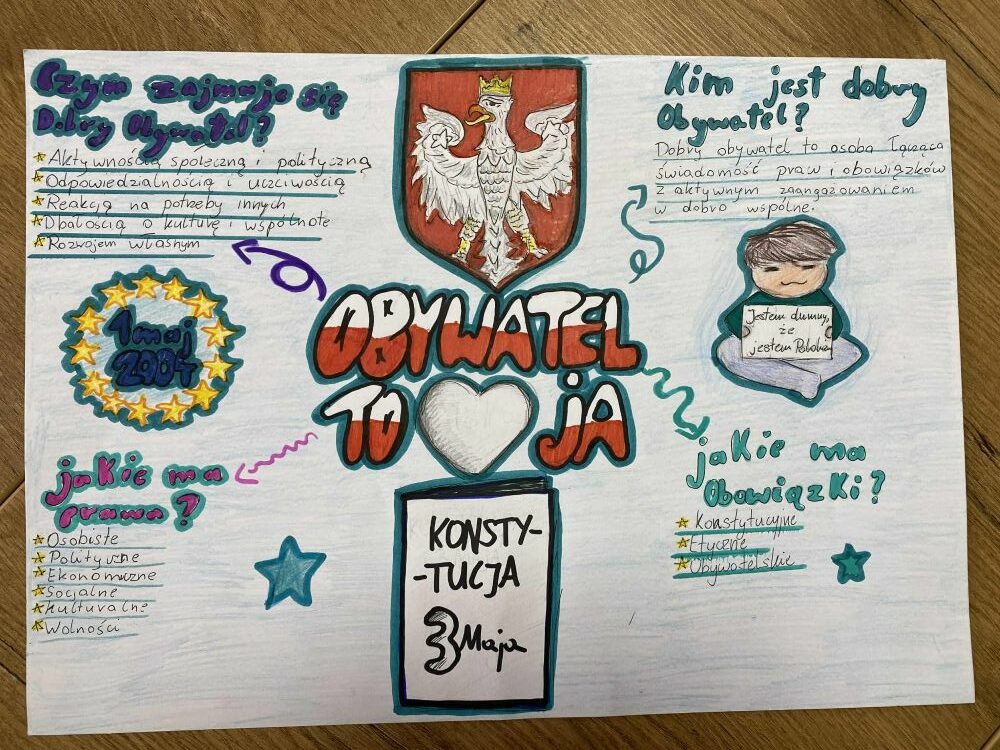 Czym zajmuje się
Dobry Obywatel?
Aktywnością społeczną i polityczną
Odpowiedzialnością i uczciwością
Reakcją na potrzeby innych
Dbałością o kulturę i wspólnotę
Rozwojem własnym
Kim jest dobry
Obywatel?
Dobry obywatel to osoba łącząca
świadomość praw i obowiązków
z aktywnym zaangażowaniem
w dobro wspólne.
1 maj
2004
OBYWATEL
TO JA
Jestem dumny,
że
jestem Polakiem
jakie ma
prawa?
Osobiste
Polityczne
Ekonomiczne
Socjalne
Kulturalne
Wolności
jakie ma
Obowiązki?
Konstytucyjne
Etyczne
Obywatelskie
KONSTY-
-TUCJA
3 Maja